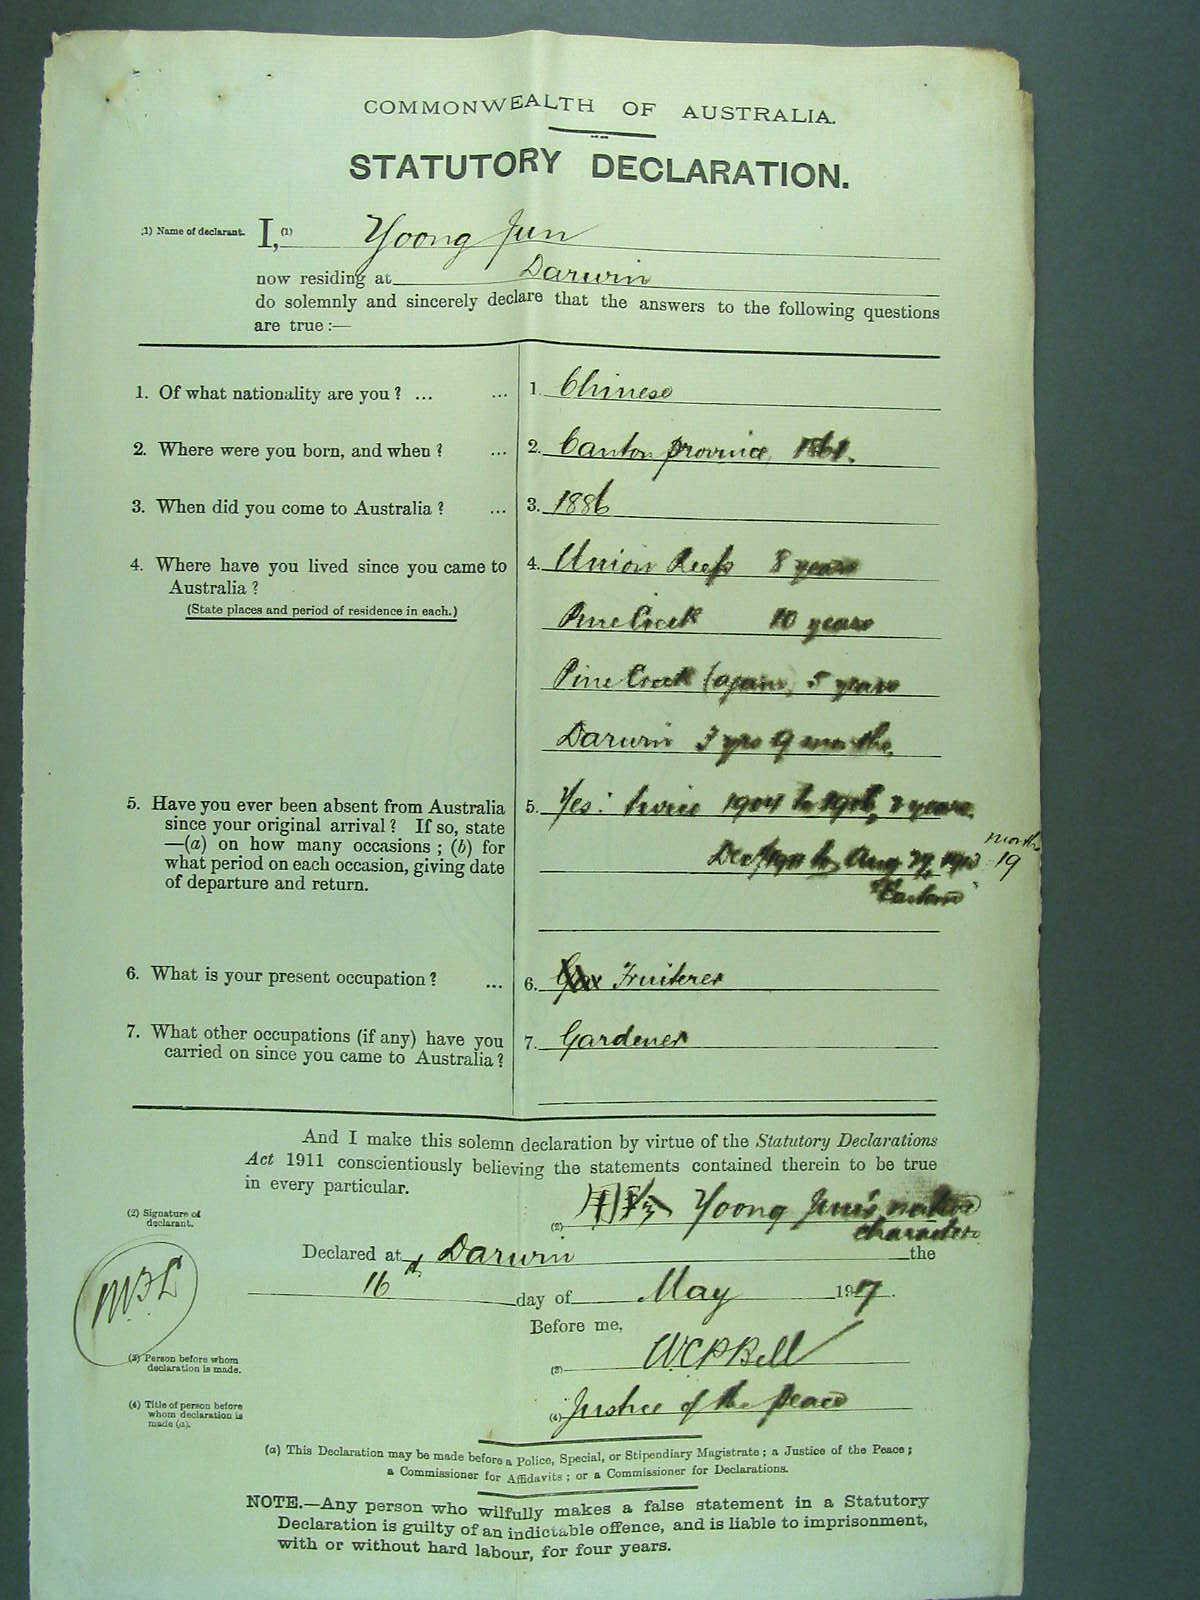 COMMONWEALTH OF AUSTRALIA.
STATUTORY DECLARATION.
(1) Name of declarant. I, (1) Yoong Jun
now residing at Darwin
do solemnly and sincerely declare that the answers to the following questions
are true :—
1. Of what nationality are you ? ... ... 1. Chinese
2. Where were you born, and when ? ... 2. Canton province, 1861.
3. When did you come to Australia ? ... 3. 1886
4. Where have you lived since you came to 4. Union Reefs 8 years
Australia ?
(State places and period of residence in each.)
Pine Creek 10 years
Pine Creek (again) 5 years
Darwin 3 yrs 9 months.
5. Have you ever been absent from Australia 5. Yes: twice 1904 to 1906, 2 years.
since your original arrival ? If so, state
—(a) on how many occasions ; (b) for
what period on each occasion, giving date
of departure and return.
Dec/1911 to Aug 1913 19 months
"Eastern"
6. What is your present occupation ? ... 6. Fruiterer
7. What other occupations (if any) have you 7. Gardener
carried on since you came to Australia ?
And I make this solemn declaration by virtue of the Statutory Declarations
Act 1911 conscientiously believing the statements contained therein to be true
in every particular.
(2) Signature of
declarant.
(2) Yoong Jun's native
characters
Declared at Darwin the
16th day of May 1917.
Before me,
(3) Person before whom
declaration is made.
(3) W.C.P. Bell
(4) Title of person before
whom declaration is
made (a).
(4) Justice of the Peace
(a) This Declaration may be made before a Police, Special, or Stipendiary Magistrate ; a Justice of the Peace ;
a Commissioner for Affidavits ; or a Commissioner for Declarations.
NOTE.—Any person who wilfully makes a false statement in a Statutory
Declaration is guilty of an indictable offence, and is liable to imprisonment,
with or without hard labour, for four years.